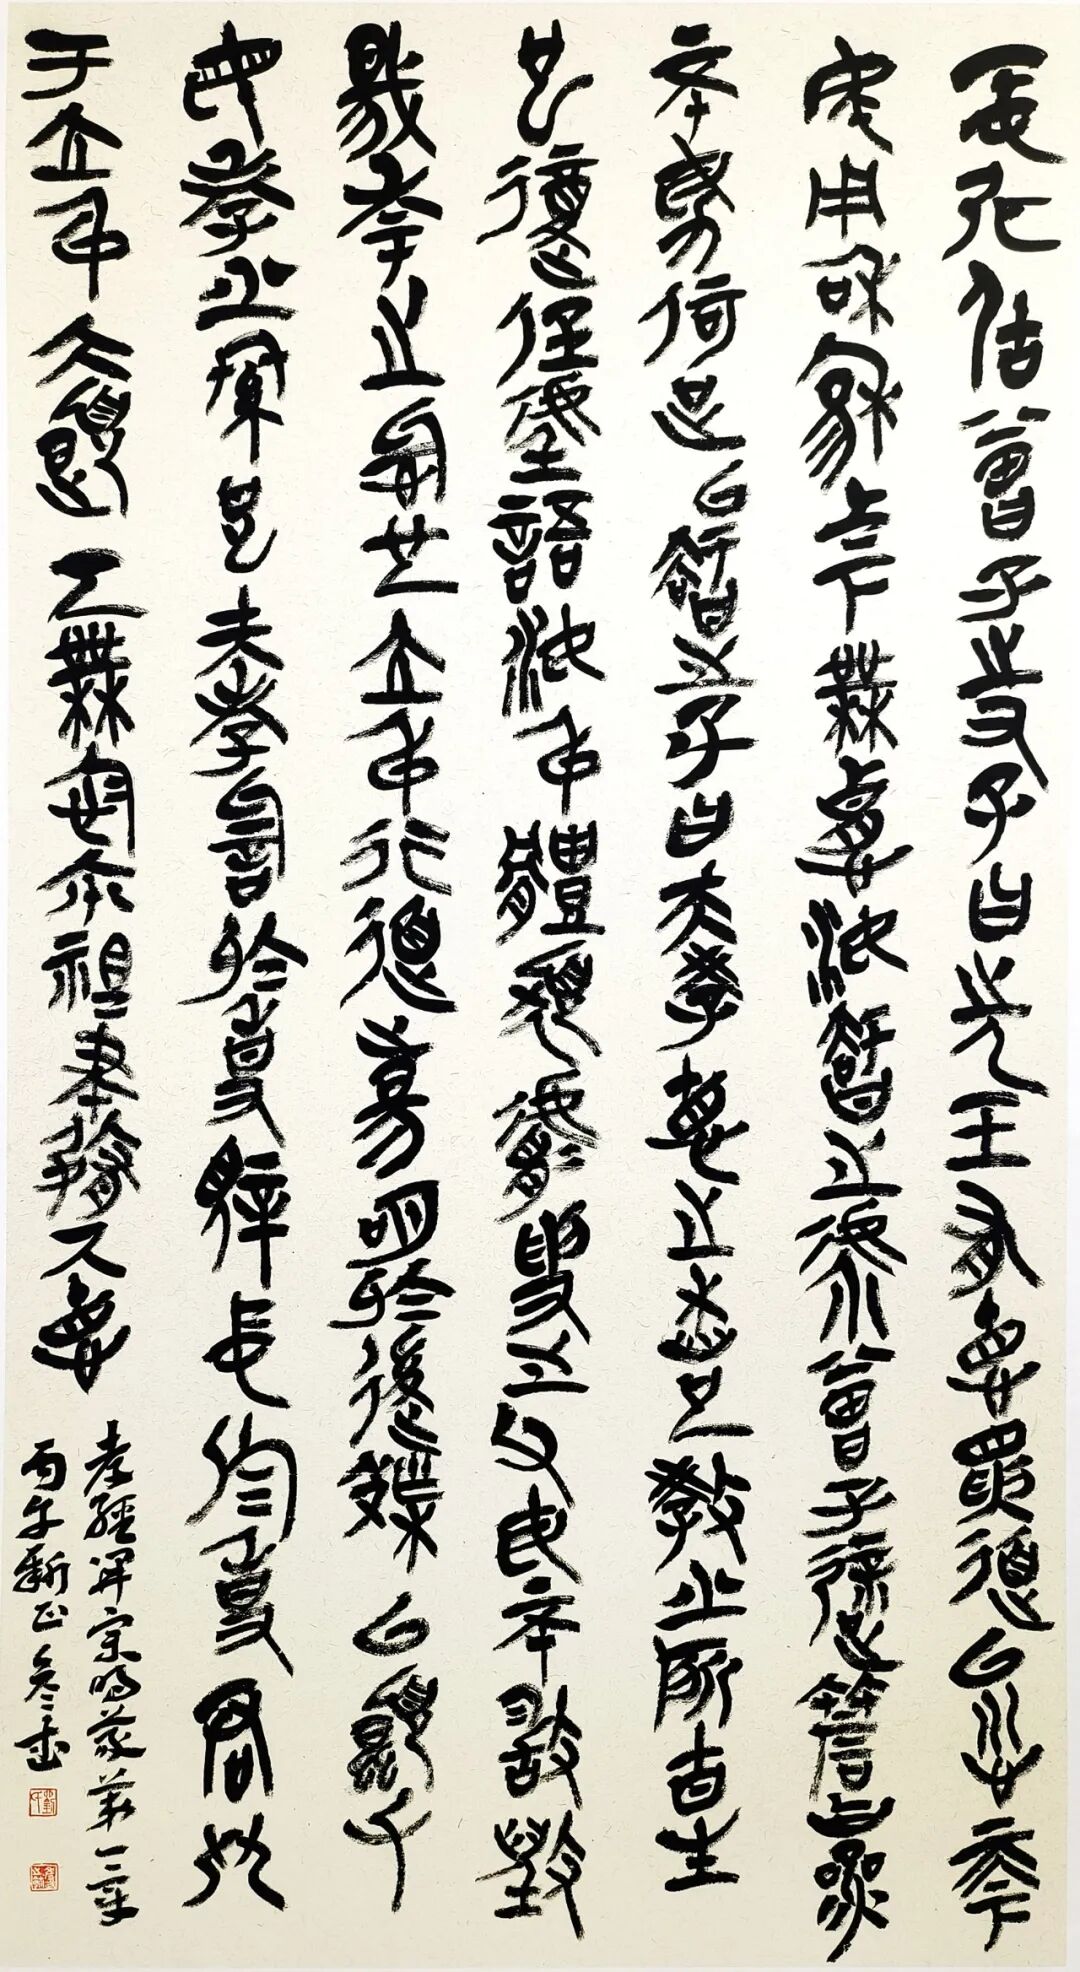 仲尼居曾子侍子曰先王有至德要道以順天下
民用和睦上下無怨汝知之乎曾子避席曰參
不敏何足以知之子曰夫孝德之本也教之所由生
也復坐吾語汝身體髮膚受之父母不敢毀
傷孝之始也立身行道揚名於後世以顯父
母孝之終也夫孝始於事親中於事君終
於立身大雅云無念爾祖聿脩厥德
孝經開宗明義第一章
丙午新正